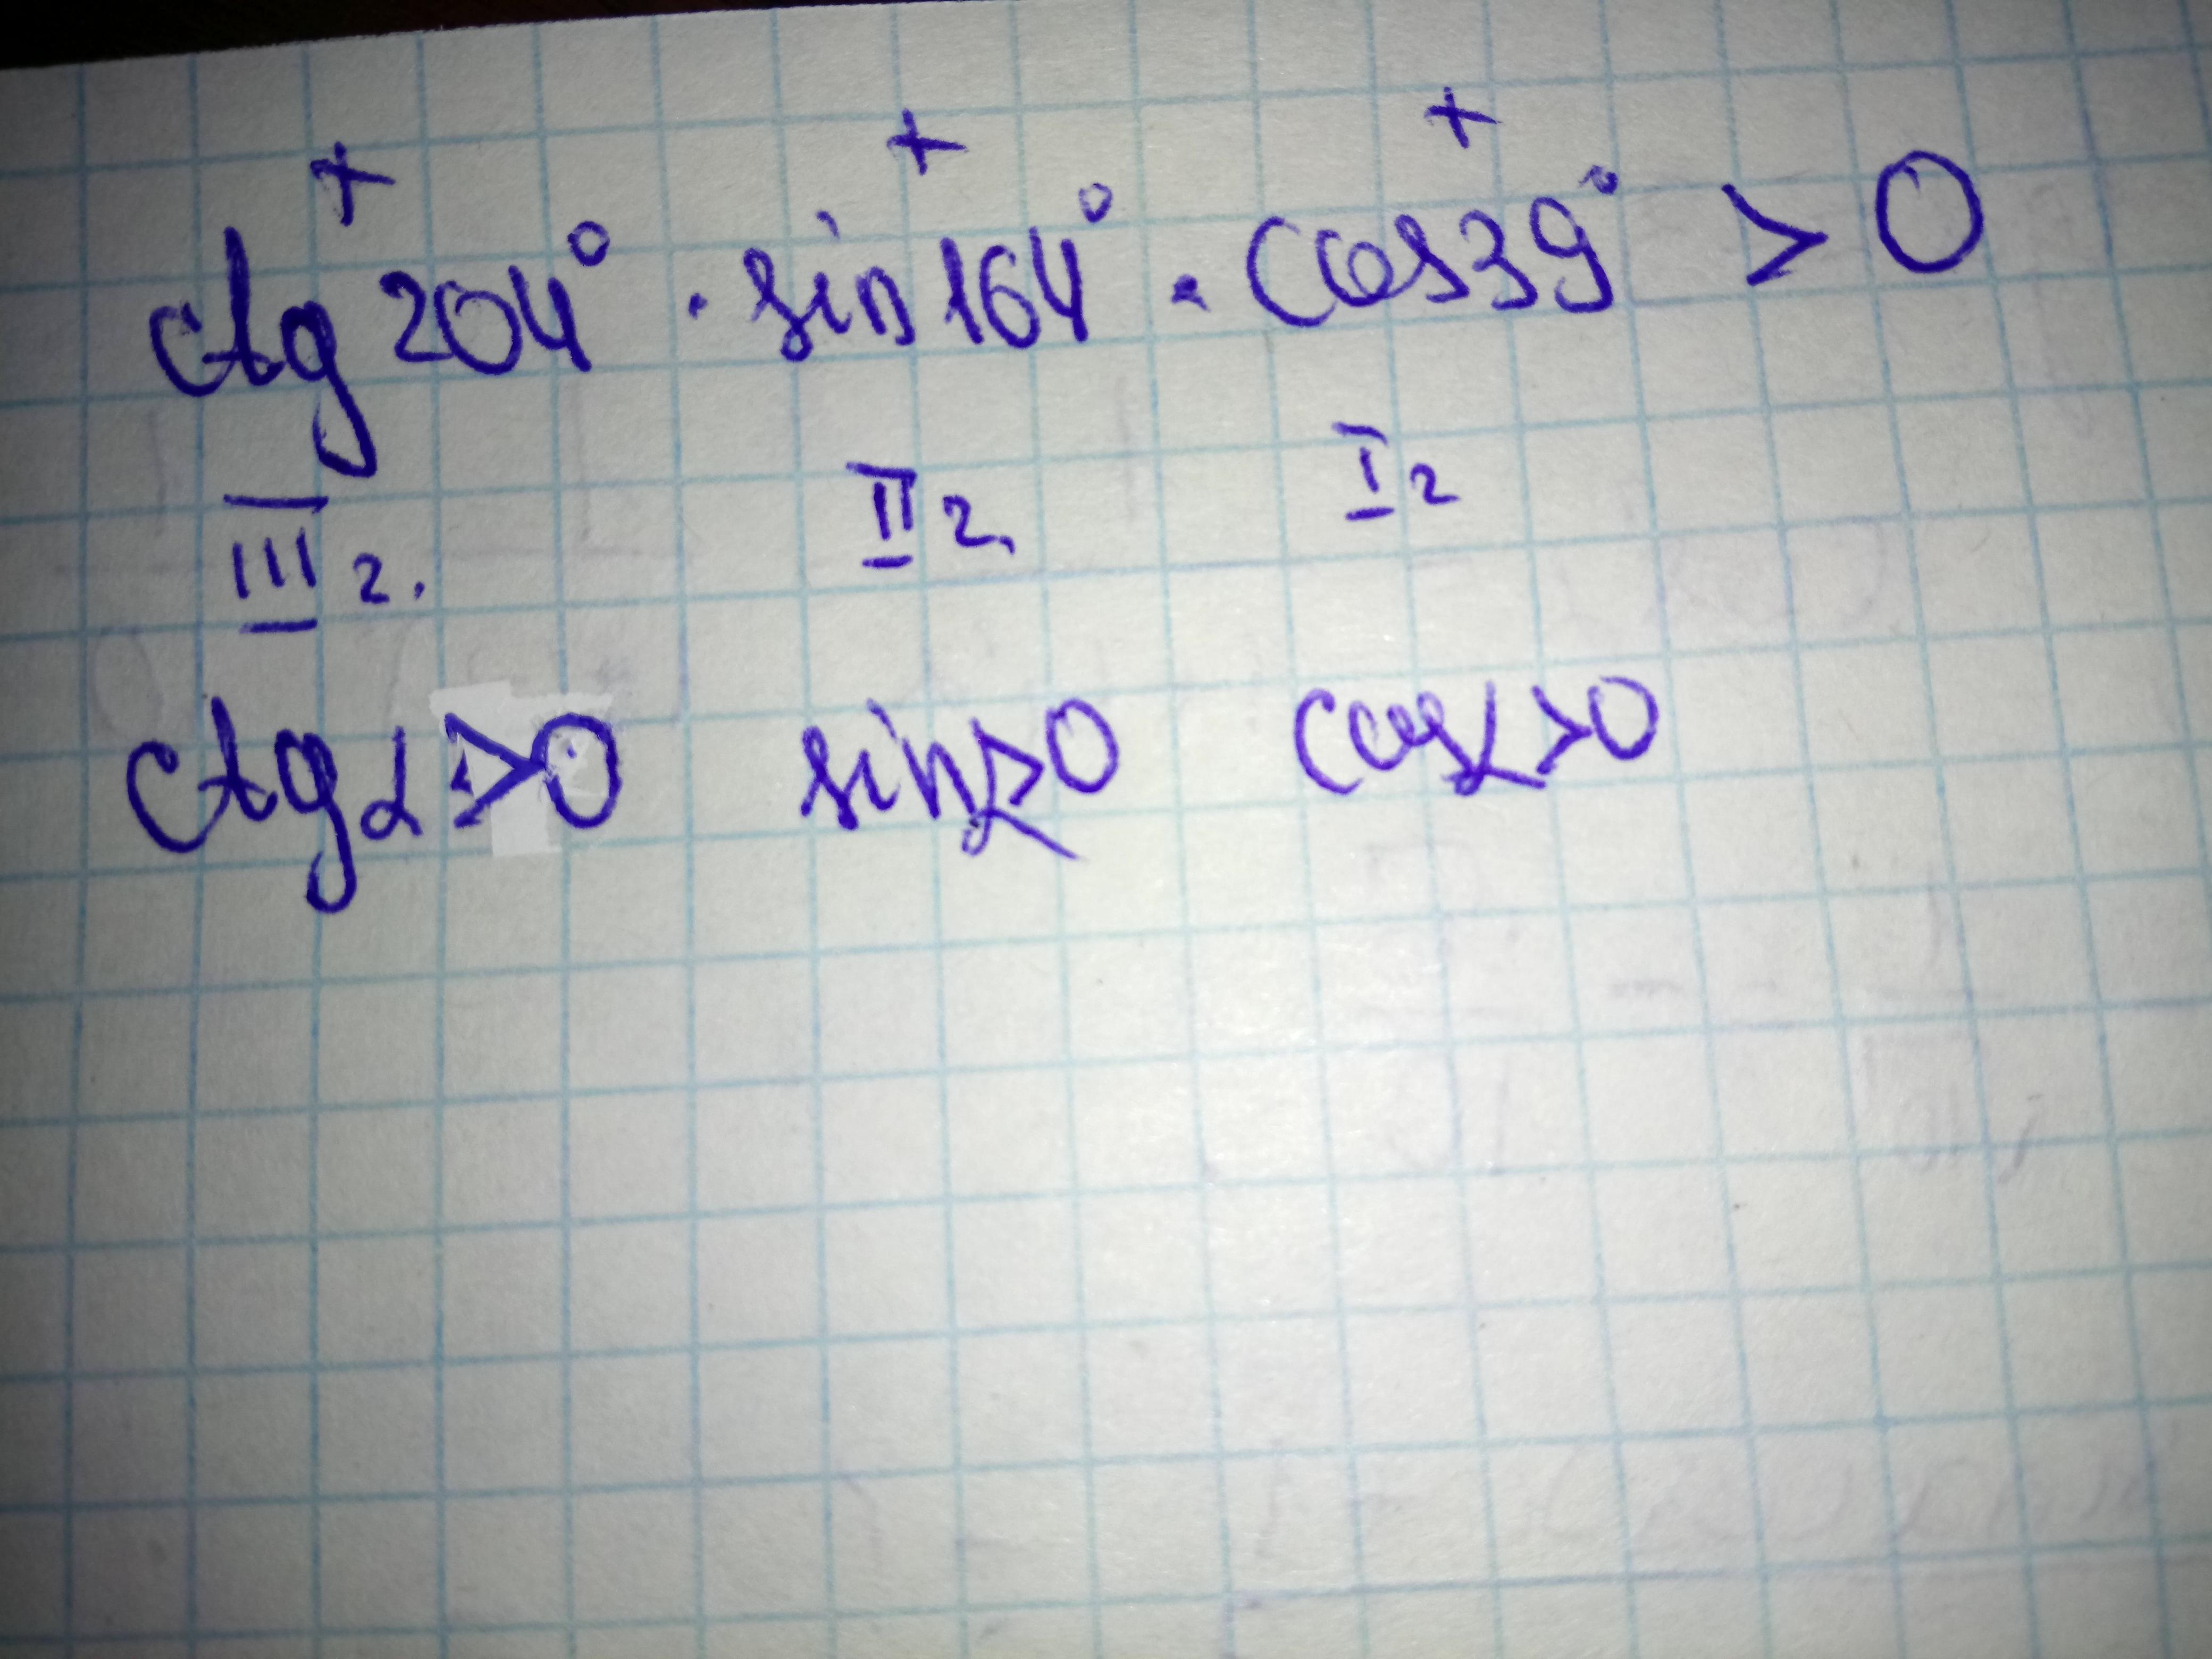 + + +
ctg 204° · sin 164° · cos 39° > 0
III г. II г. I г
ctg α > 0 sin α > 0 cos α > 0